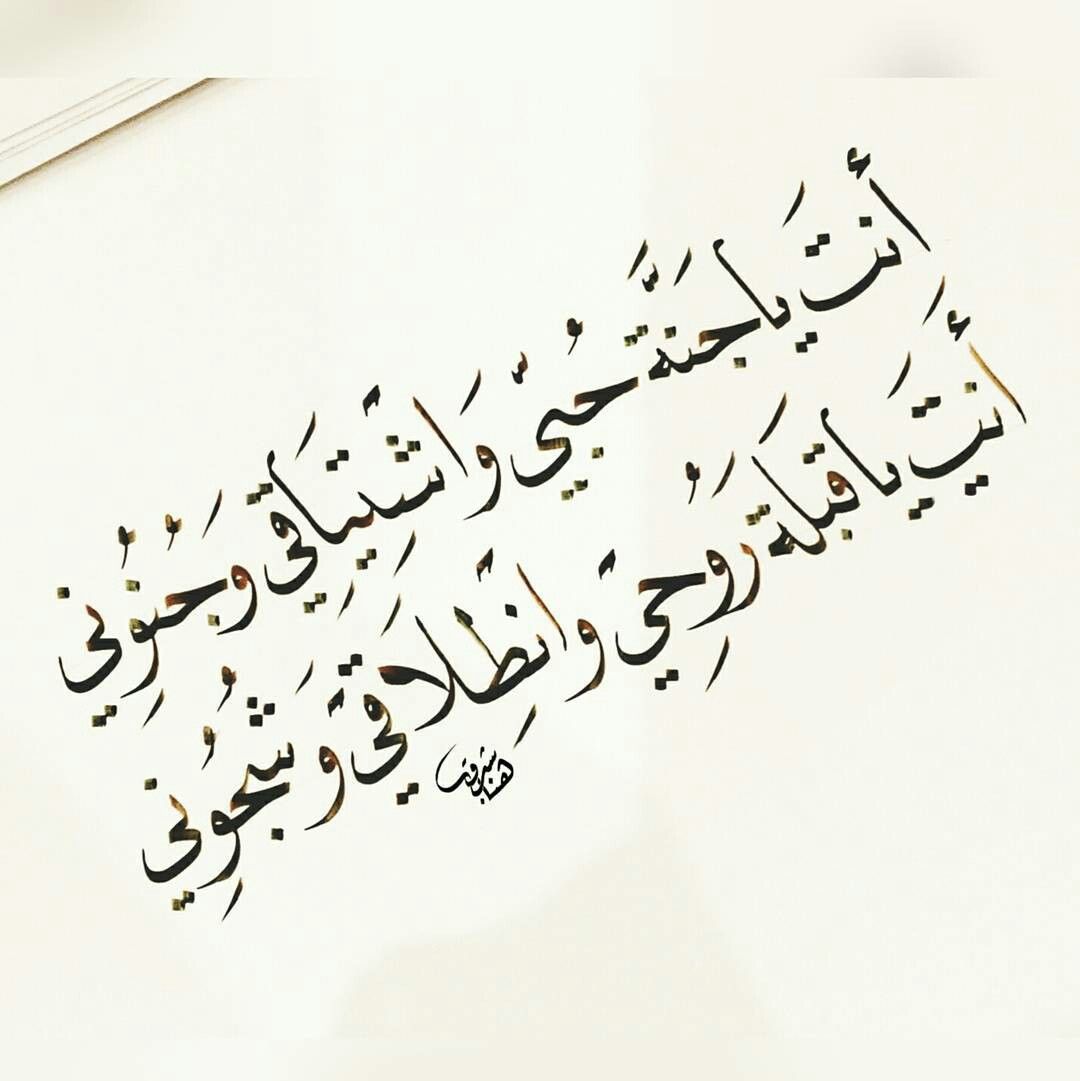 أَنتَ يَا جَنَّةَ حُبّي وَاشْتِيَاقي وَجُنُوني
أَنتَ يَا قبلَة رَوُحِي وَانْطِلَاقي وَشُجُوني